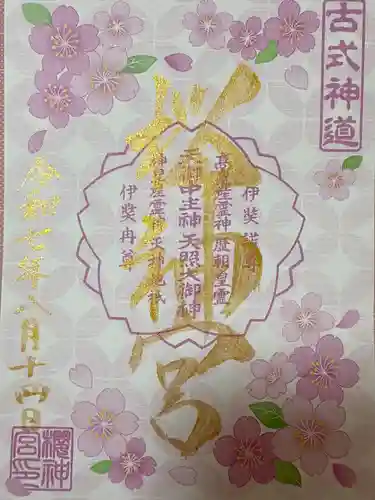 古式神道
櫻神宮
伊奘諾尊
高皇産霊神 歴朝皇霊
天御中主神 天照大御神
神皇産霊神 天神地祇
伊奘冉尊
令和七年八月十四日
櫻神宮印